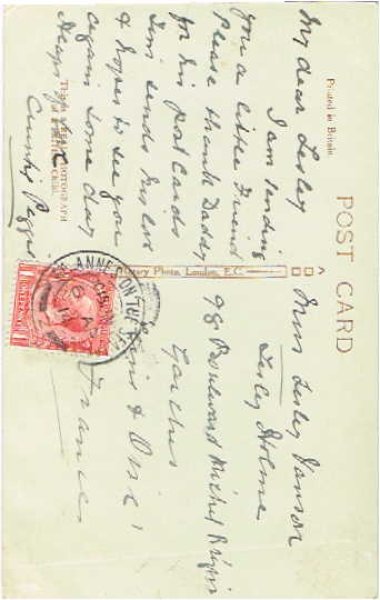 POST CARD
Printed in Britain
My dear Lesley
I am sending
you a little Friend
Please thank Daddy
for his post cards
Tim sends his love
& hopes to see you
again some day
Heaps of love
Auntie Peggie
THIS IS A REAL PHOTOGRAPH
Rotary Photo, London, E.C.
Miss Lesley
Lesley Holme
98 Boulevard Michel
Garches
Seine & Oise
France
ST ANNE'S-ON-THE-SEA